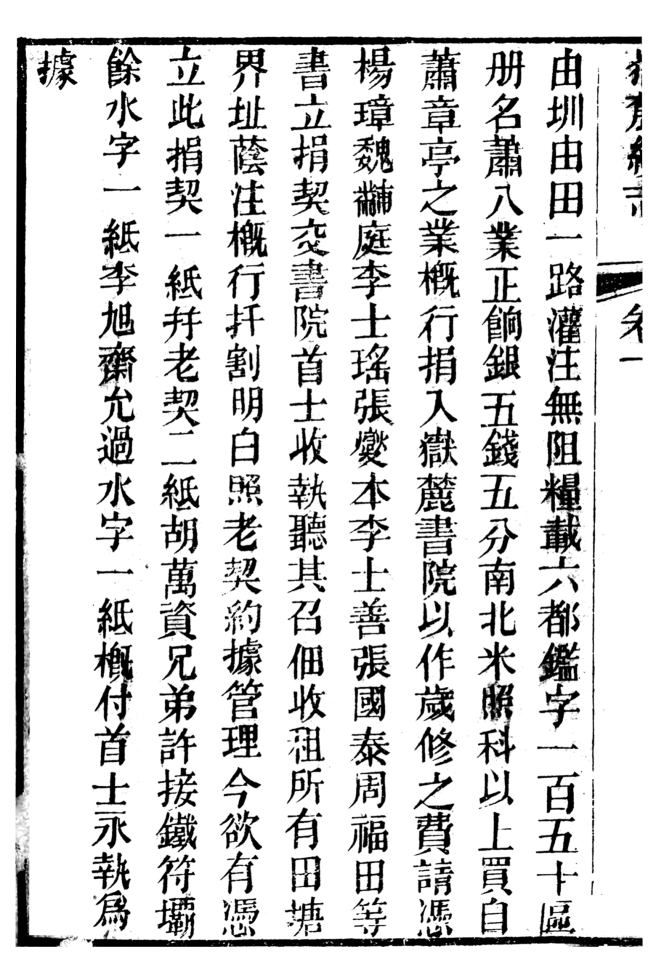 卷一
由圳由田一路灌注無阻糧載六都鑑字一百五十區
册名蕭八業正餉銀五錢五分南北米照科以上買自
蕭章亭之業槪行捐入嶽麓書院以作歲修之費請憑
楊璋魏黼庭李士瑤張燮本李士善張國泰周福田等
書立捐契交書院首士收執聽其召佃收租所有田塘
界址蔭注槪行扦割明白照老契約據管理今欲有憑
立此捐契一紙幷老契二紙胡萬資兄弟許接鐵符壩
餘水字一紙李旭齋允過水字一紙槪付首士永執爲
據